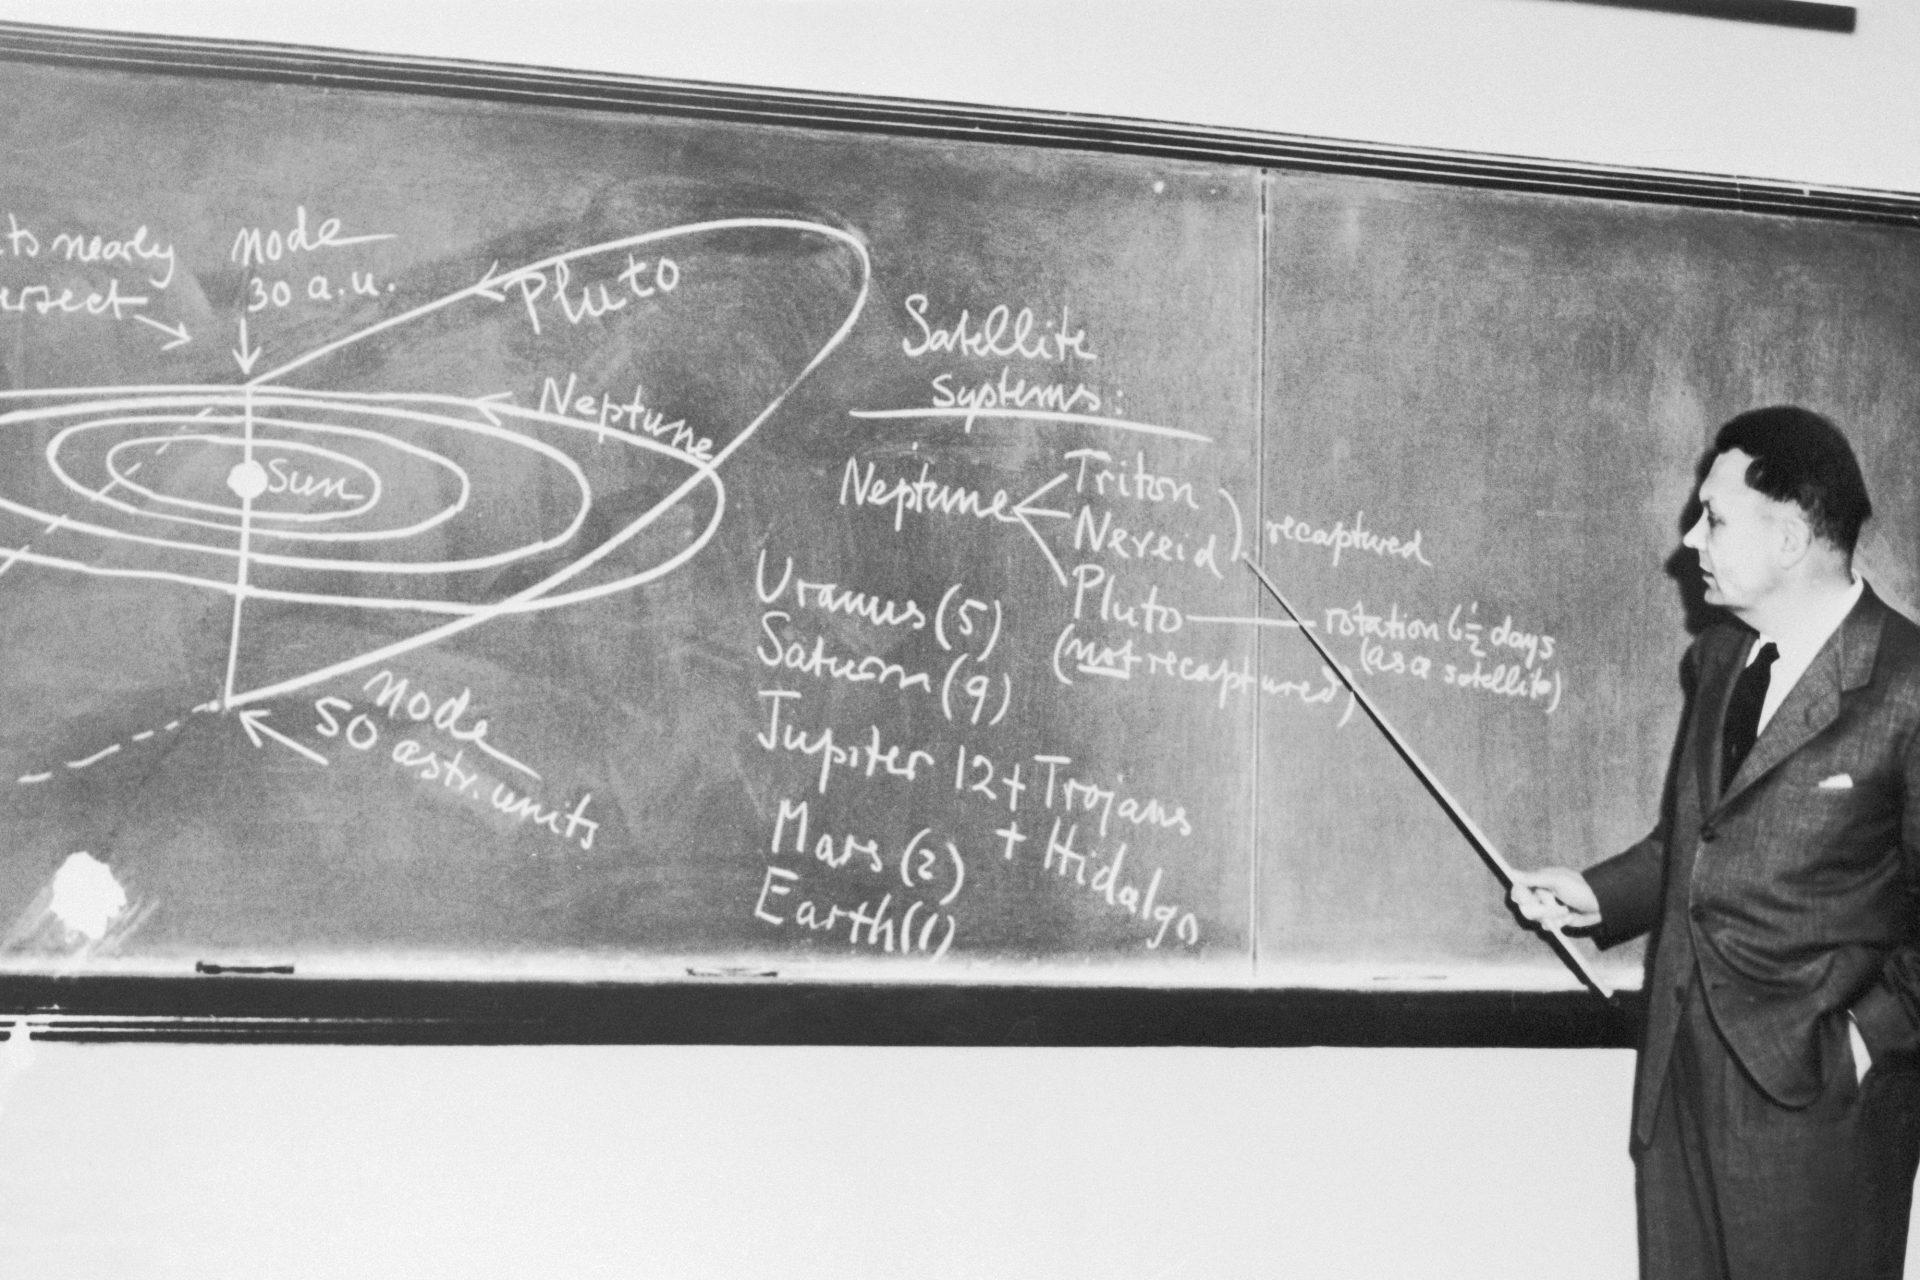 nearly
node
30 a.u.
Pluto
Neptune
Sun
node
50 astr. units
Satellite
Systems:
Neptune
Triton
Nereid
recaptured
Pluto
rotation 6½ days
(as a satellite)
(not recaptured)
Uranus (5)
Saturn (9)
Jupiter 12 + Trojans
+ Hidalgo
Mars (2)
Earth (1)